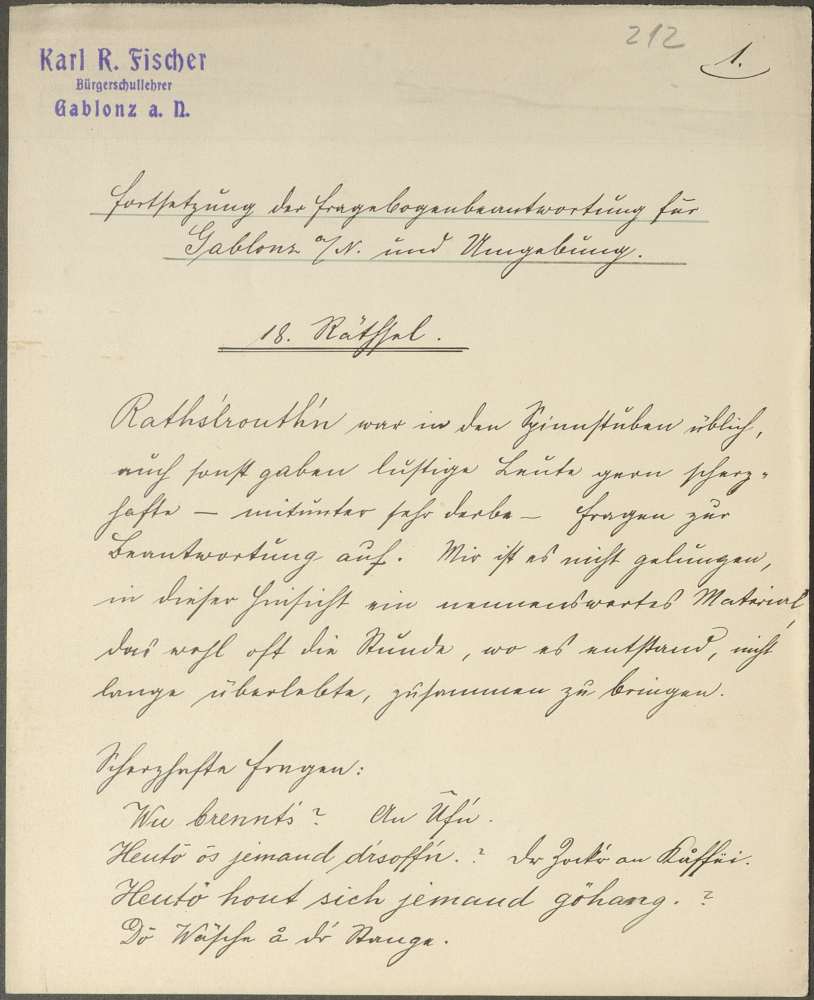 212
1.
Karl R. Fischer
Bürgerschullehrer
Gablonz a. N.
Fortsetzung der Fragebogenbeantwortung für
Gablonz a/N. und Umgebung.
18. Räthsel.
war in den Spinnstuben üblich,
auch sonst gaben lustige Leute gern scherz-
hafte – mitunter sehr derbe – Fragen zur
Beantwortung auf. Mir ist es nicht gelungen,
in dieser Hinsicht ein nennenswertes Material,
das wohl oft die Stunde, wo es entstand, nicht
lange überlebte, zusammen zu bringen.
Scherzhafte Fragen:
Wu brennt's? An Ūf'n.
Heutō ös jemand d'rsoffn.? Dr Zock'r an Kåffëi.
Heutö hout sich jemand göhang.?
Dō Wäsche å d'r Stange.